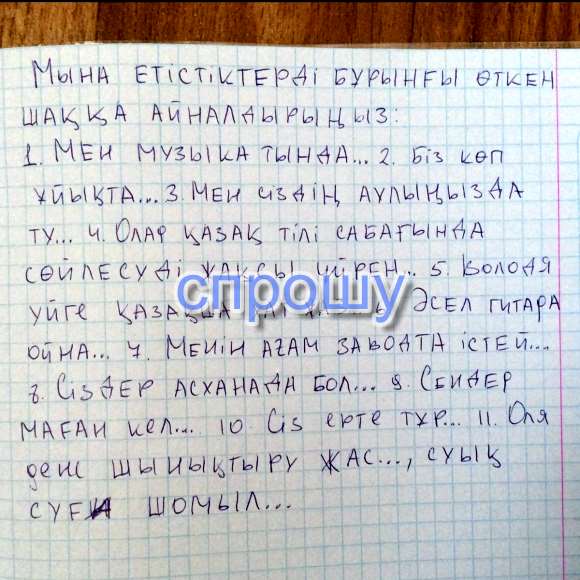 Мына етістіктерді бұрынғы өткен
шаққа айналдырыңыз:
1. Мен музыка тыңда... 2. Біз көп
ұйықта... 3. Мен сіздің аулыңызда
ту... 4. Олар қазақ тілі сабағында
сөйлесуді жақсы үйрен... 5. Володя
спрошу
үйге қазақша Әсел гитара
ойна... 7. Менің ағам заводта істей...
8. Сіздер асханада бол... 9. Сендер
маған кел... 10. Сіз ерте тұр... 11. Оля
дене шынықтыру жас..., суық
суға шомыл...